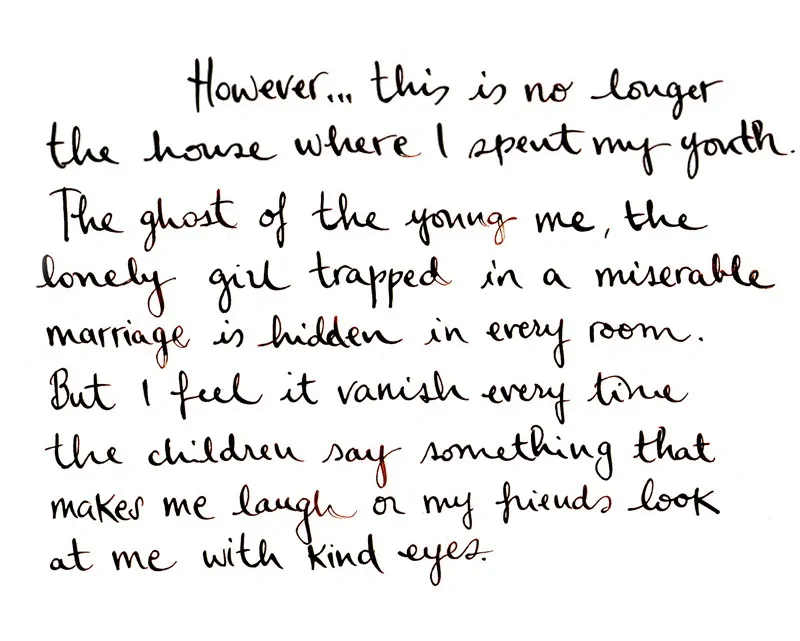 However... this is no longer
the house where I spent my youth.
The ghost of the young me, the
lonely girl trapped in a miserable
marriage is hidden in every room.
But I feel it vanish every time
the children say something that
makes me laugh or my friends look
at me with kind eyes.